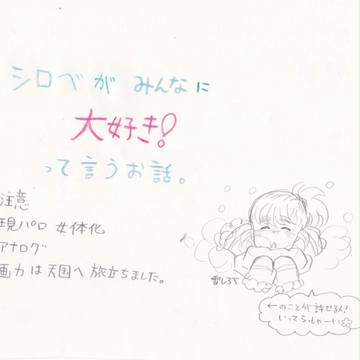 シロべが みんなに
大好き!
って言うお話。
注意
現パロ 女体化
アナログ
画力は天国へ旅立ちました。
←のことが許せる人!
いってらっしゃーい☆